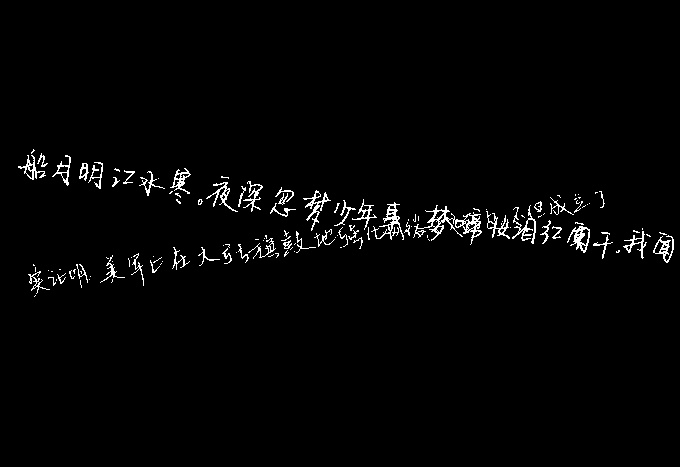 船月明江水寒。夜深忽梦少年事,梦啼妆泪红阑干。我闻
实证明,美军已在大张旗鼓地强化 但成立了